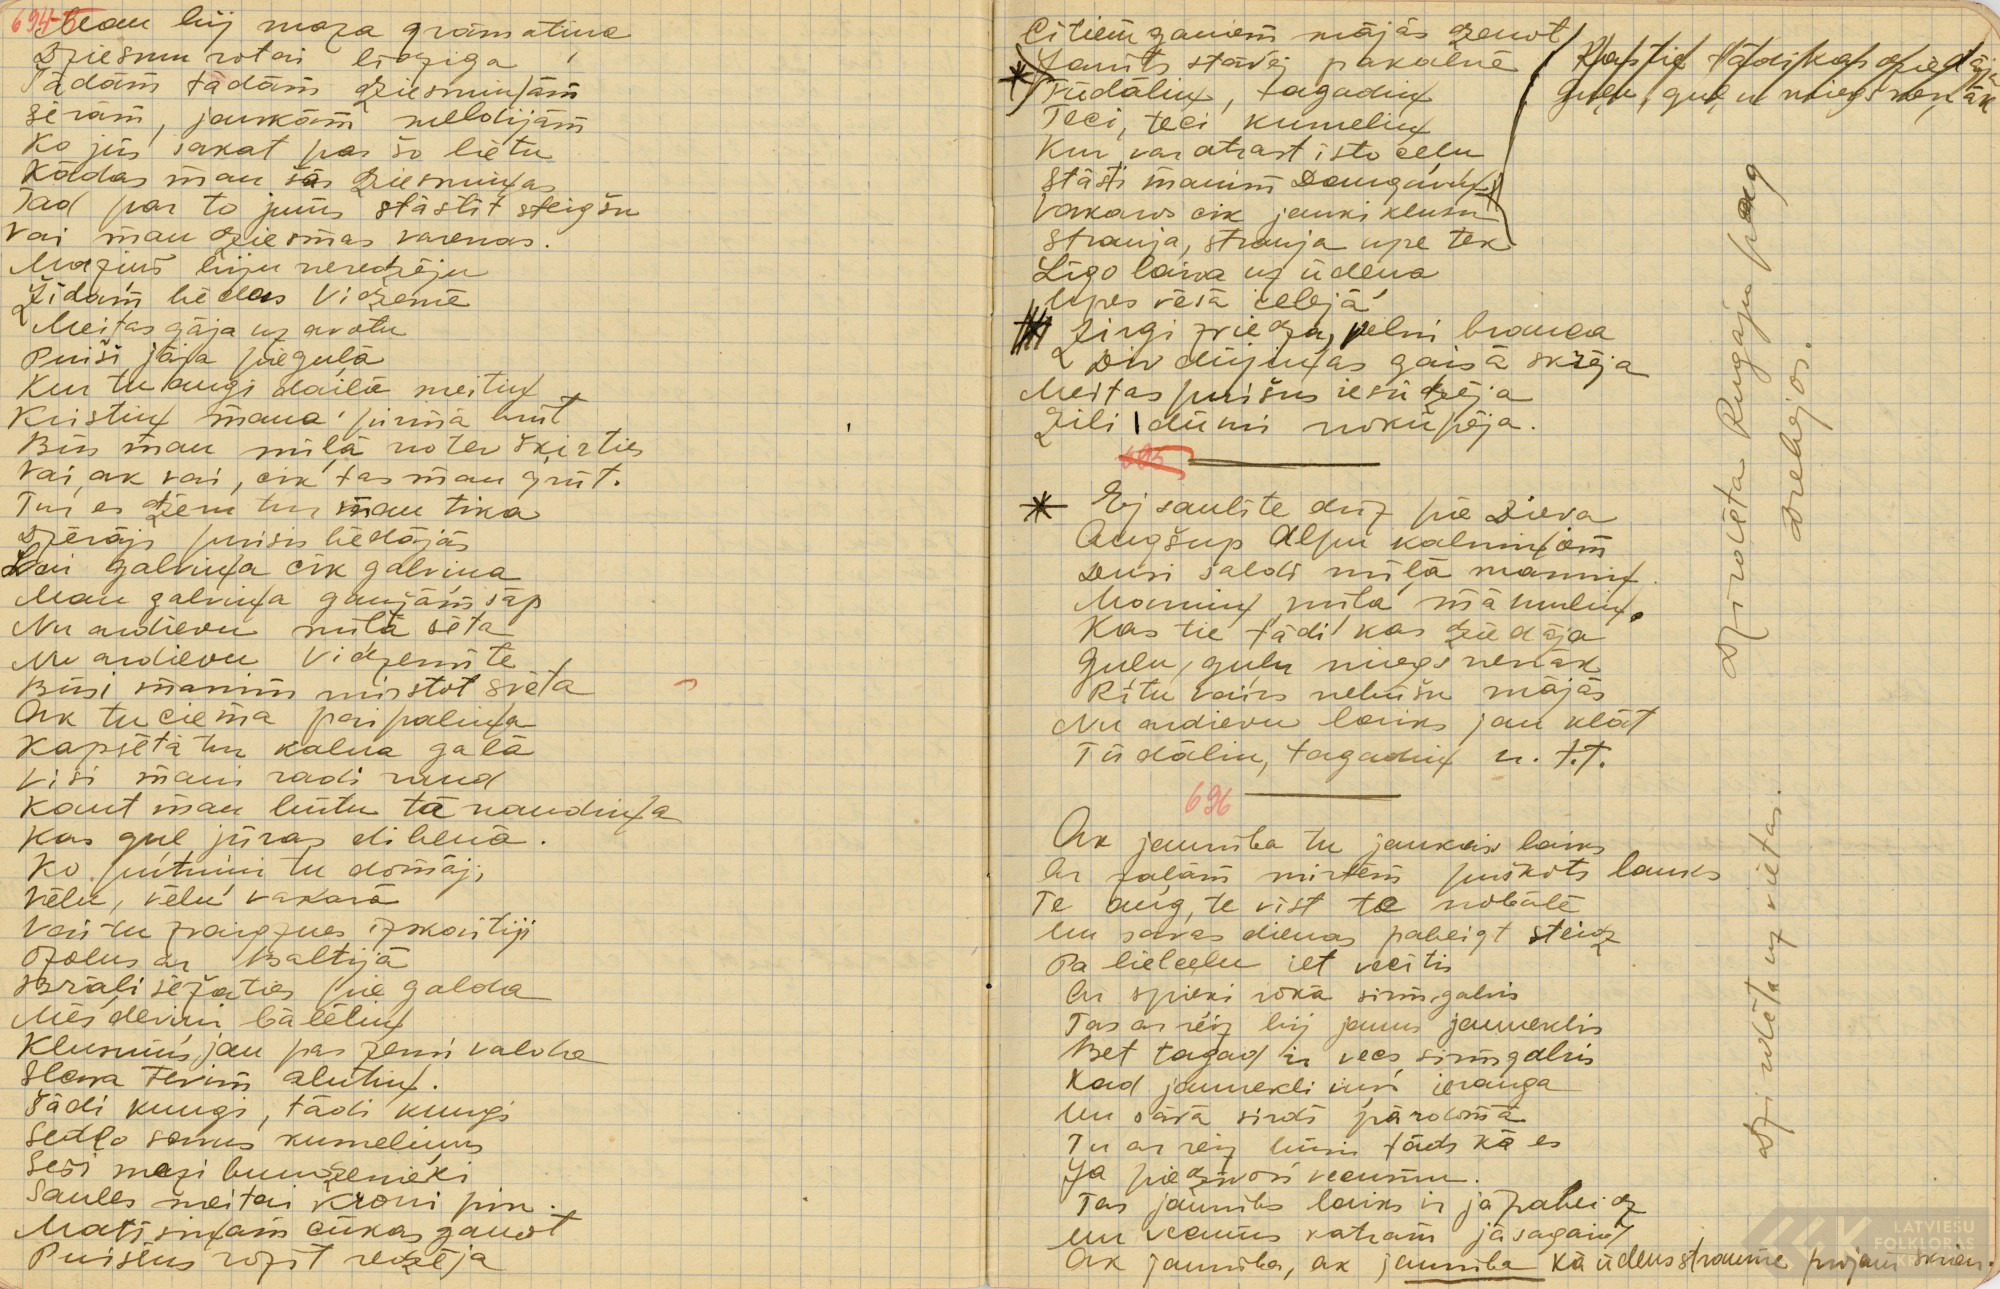 694-5
Man bij maza grāmatiņa
Dziesmu rotai līdzīga
Tādām tādām dziesmiņām
Sērām, jaukām melodijām
Ko jūs sakat par šo lietu
Kādas man šās dziesmiņas
Tad par to jums stāstīt steigšu
Vai man dziesmas varenas.
Maziņš biju neredzēju
Žīdam bēdas Vidzemē
Meitas gāja uz avotu
Puiši jāja piegulā
Kur tu augi dailā meitiņ
Kristiņ mana pirmā būt
Būs man mīļā no tev šķirties
Vai, ak vai, cik tas man grūt.
Tur es dzēru tur man tika
Dzērājs puisis bēdājās
Lai galviņa cik galviņa
Man galviņa gaužām sāp
Nu ardievu mīļā sēta
Nu ardievu Vidzemīte
Būsi manim mirstot svēta
Ak tu ciema paipaliņa
Kapsētā tur kalna galā
Visi mani radi raud
Kaut man būtu tā naudiņa
Kas guļ jūras dibenā.
Ko putniņi tu domāji
Vēlu, vēlu vakarā
Vai tu zvaigznes izskaitīji
Ozolus ar Baltijā
Brāļi sēžaties pie galda
Mēs deviņi bālēliņ
Klusums jau pār zemi valda
Slava Tevim alutiņ.
Tādi kungi, tādi kungi
Sedlo savus kumeliņus
Seši mazi bundzenieki
Saules meitai kroni pin.
Matīsiņam cūkas ganot
Puisēns rozīt redzēja
Citiem ganiem mājās dzenot
Jānīts stāvēj pakalnē
Tūdāliņ, tagadiņ
Teci, teci kumeliņ
Kur var atrast īsto ceļu
Stāsti manim Daugaviņ
Vakars cik jauki klusu
Strauja, strauja upe tek
Līgo laiva uz ūdeņa
Upes vēsā ielejā
Zirgi zviedza, pelni brauca
Div dūjiņas gaisā skrēja
Meitas puišus iesūdzēja
Zili dūmi nokūpēja.
Kas tie tādi kas dziedāja
Guļu, guļu miegs nenāk
695
Ej saulīte drīz pie Dieva
Augšup Alpu kalniņiem
Dusi saldi mīļā māmiņ
Māmiņ mīļā māmuliņ.
Kas tie tādi kas dziedāja
Guļu, guļu miegs nenāk
Rītu vairs nebūšu mājās
Nu ardievu laiks jau klāt
Tūdāliņ, tagadiņ u. t.t.
696
Ak jaunība tu jaukais laiks
Ar zaļām mirtēm puškots lauks
Te aug, te vīst te nobālē
Un savas dienas pabeigt steidz
Pa lielceļu iet vecītis
Ar spieķi rokā sirmgalvis
Tas ar reiz bij jauns jauneklis
Bet tagad ir vecs sirmgalvis
Kad jaunekli viņš ierauga
Un savā sirdī pārdomā
Tu ar reiz būsi tāds kā es
Ja piedzīvosi vecumu.
Tas jaunības laiks ir jāpabeidz
Un vecums katram jāsagaid
Ak jaunība, ak jaunība kā ūdens straume projām skrien.
Dzirdēta Rugāju pag
Drebejos.
Dzirdēta uz vietas.
LATVIEŠU
FOLKLORAS